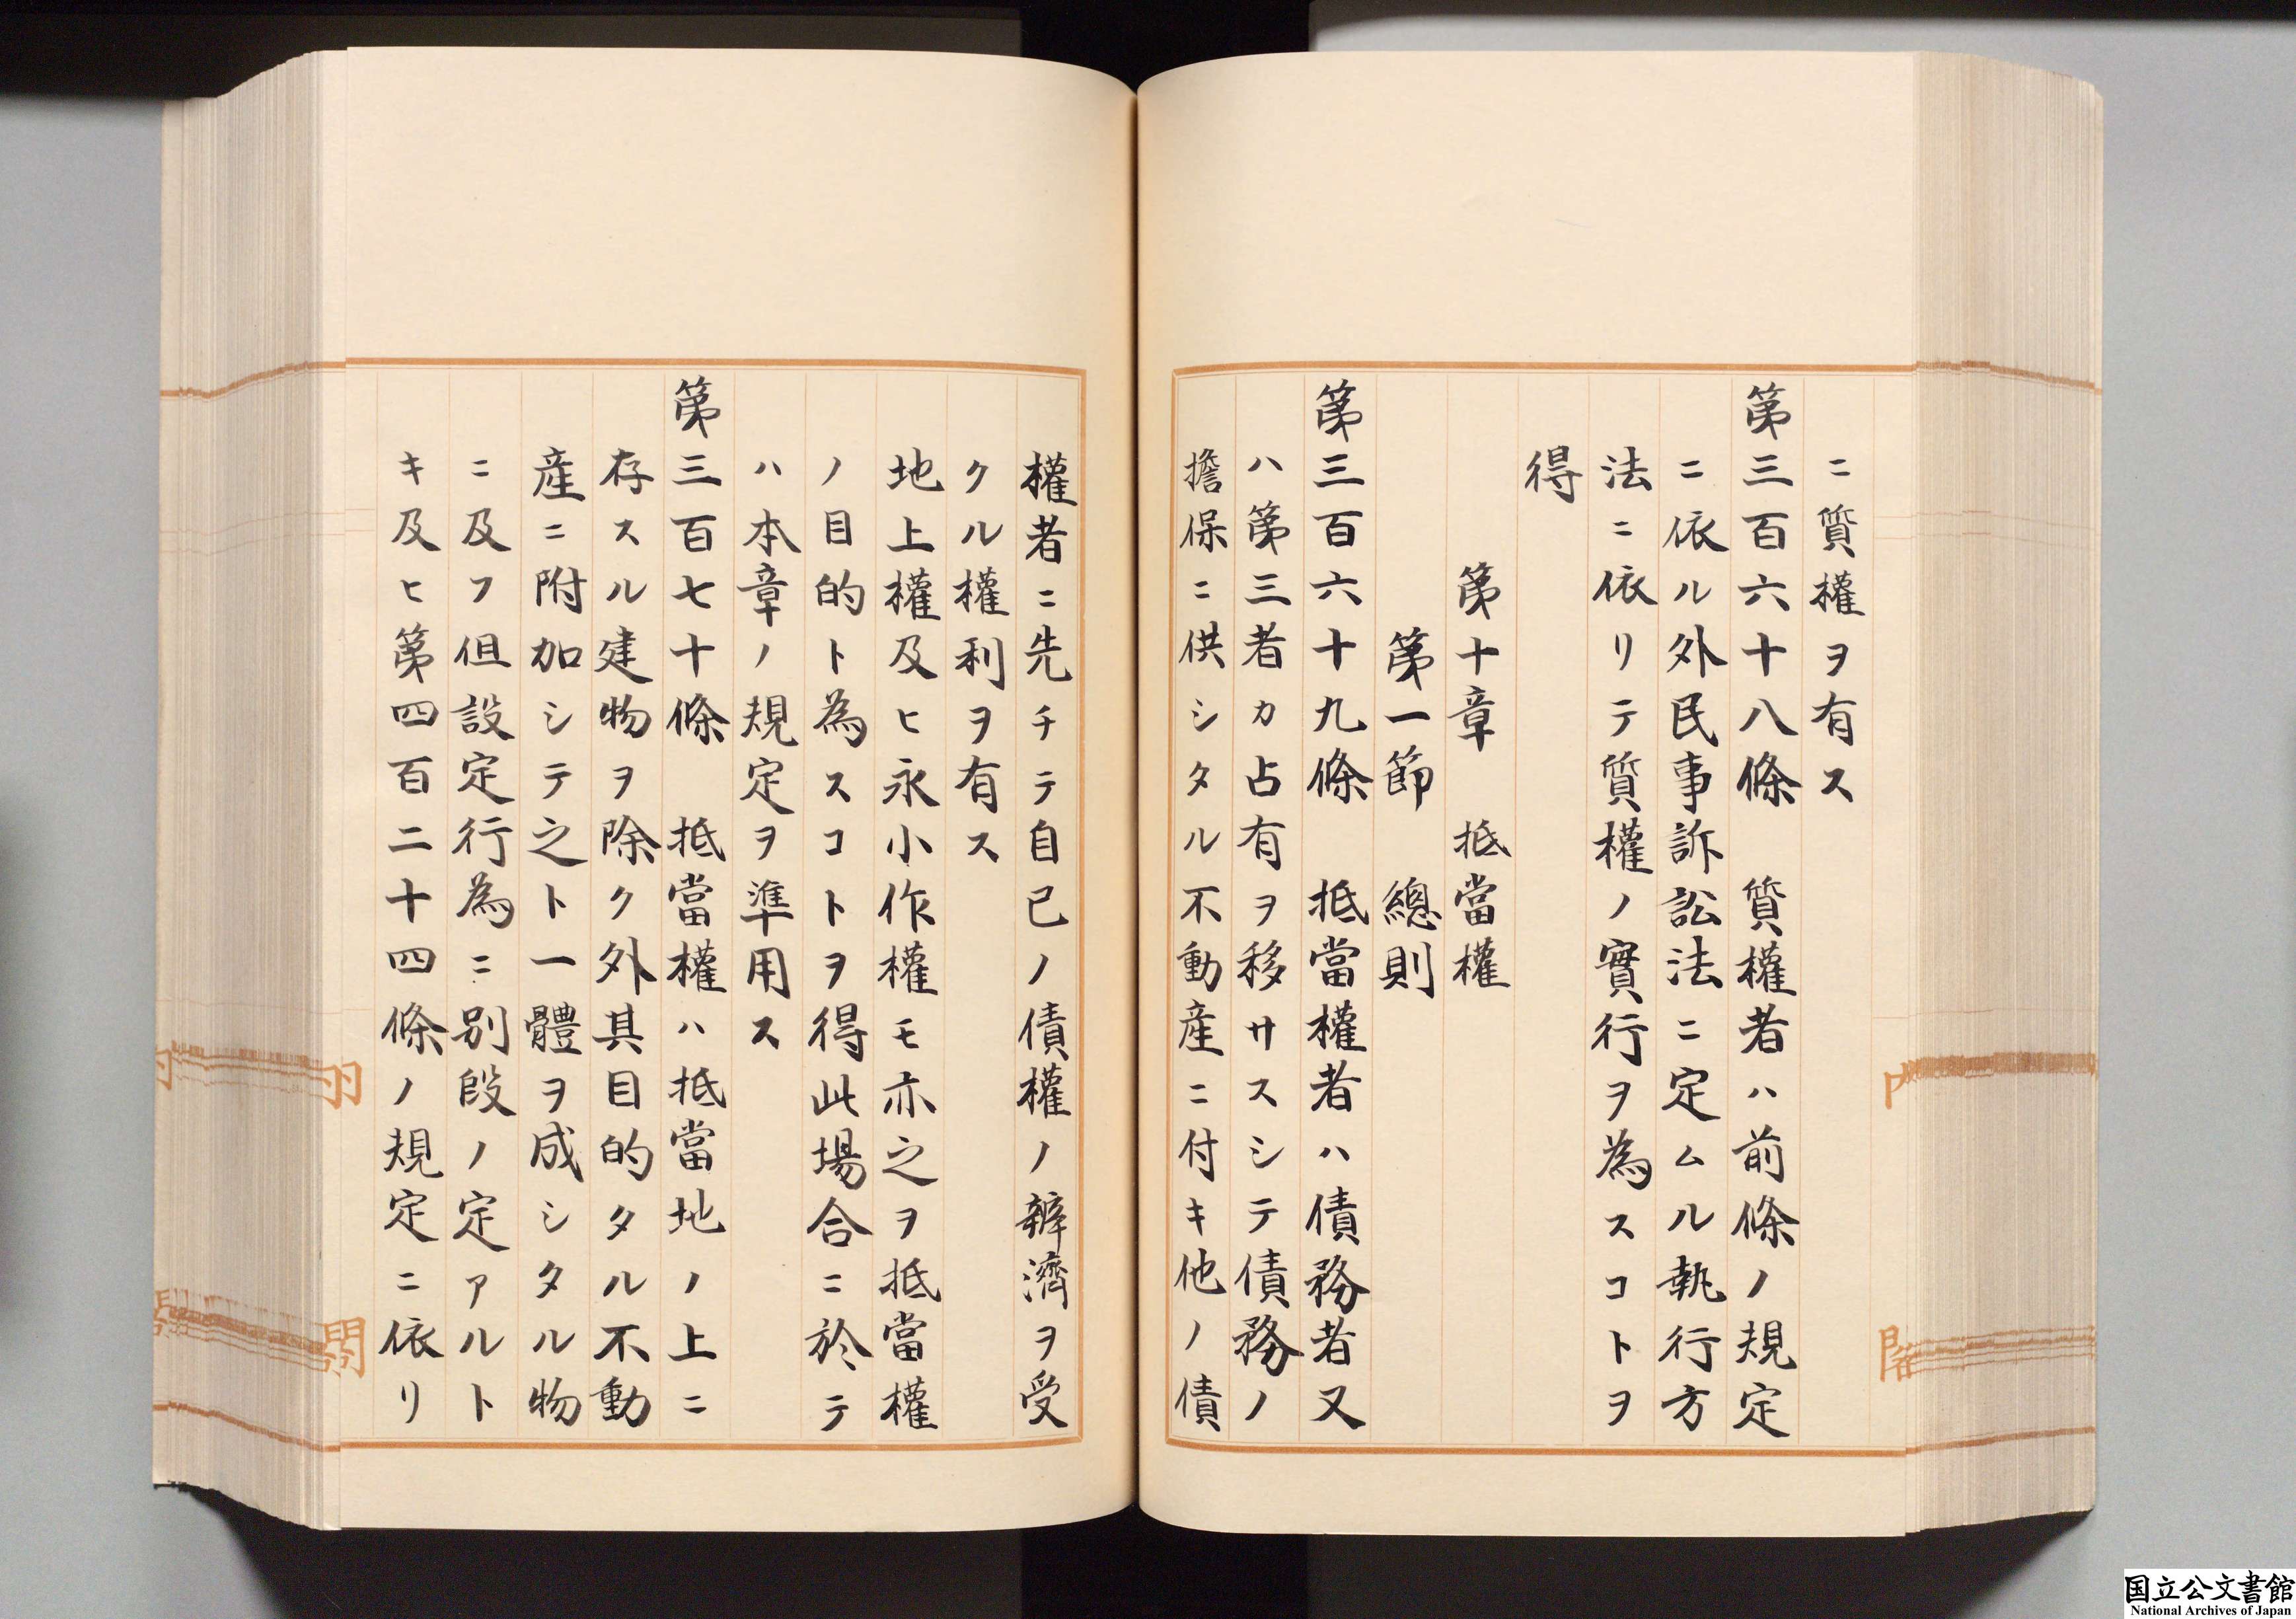 ニ質權ヲ有ス
第三百六十八條　質權者ハ前條ノ規定
ニ依ル外民事訴訟法ニ定ムル執行方
法ニ依リテ質權ノ實行ヲ為スコトヲ
得
第十章　抵當權
第一節　總則
第三百六十九條　抵當權者ハ債務者又
ハ第三者カ占有ヲ移サスシテ債務ノ
擔保ニ供シタル不動産ニ付キ他ノ債
權者ニ先チテ自己ノ債權ノ辨濟ヲ受
クル權利ヲ有ス
地上權及ヒ永小作權モ亦之ヲ抵當權
ノ目的ト為スコトヲ得此場合ニ於テ
ハ本章ノ規定ヲ準用ス
第三百七十條　抵當權ハ抵當地ノ上ニ
存スル建物ヲ除ク外其目的タル不動
産ニ附加シテ之ト一體ヲ成シタル物
ニ及フ但設定行為ニ別段ノ定アルト
キ及ヒ第四百二十四條ノ規定ニ依リ
国立公文書館
National Archives of Japan